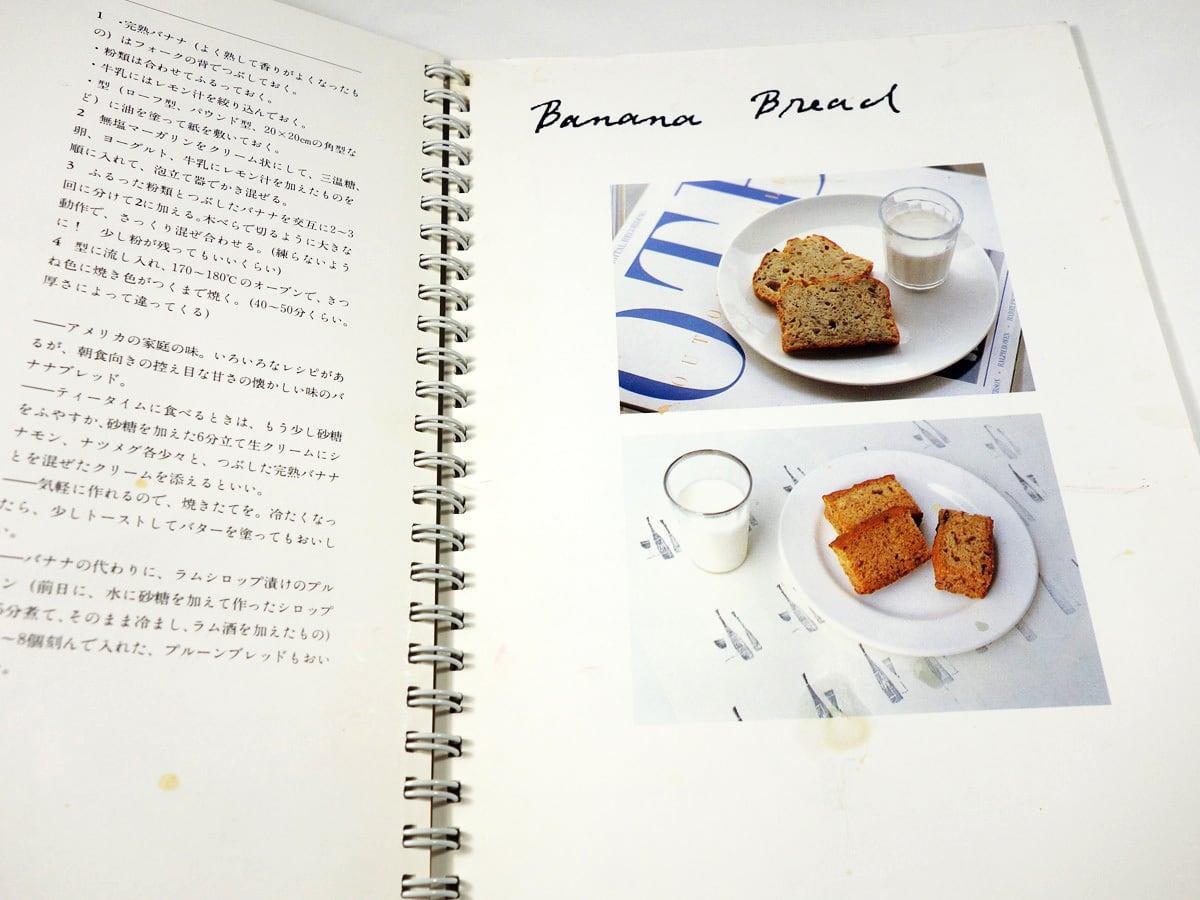 1 ・完熟バナナ（よく熟して香りがよくなったも
の）はフォークの背でつぶしておく。
・粉類は合わせてふるっておく。
・牛乳にはレモン汁を絞り込んでおく。
・型（ローフ型、パウンド型、20×20cmの角型な
ど）に油を塗って紙を敷いておく。
2 無塩マーガリンをクリーム状にして、三温糖、
卵、ヨーグルト、牛乳にレモン汁を加えたものを
順に入れて、泡立て器でかき混ぜる。
3 ふるった粉類とつぶしたバナナを交互に2～3
回に分けて2に加える。木べらで切るように大きな
動作で、さっくり混ぜ合わせる。(練らないよう
に！ 少し粉が残ってもいいくらい)
4 型に流し入れ、170～180℃のオーブンで、きつ
ね色に焼き色がつくまで焼く。(40～50分くらい。
厚さによって違ってくる)
——アメリカの家庭の味。いろいろなレシピがあ
るが、朝食向きの控え目な甘さの懐かしい味のバ
ナナブレッド。
——ティータイムに食べるときは、もう少し砂糖
をふやすか、砂糖を加えた6分立て生クリームにシ
ナモン、ナツメグ各少々と、つぶした完熟バナナ
とを混ぜたクリームを添えるといい。
——気軽に作れるので、焼きたてを。冷たくなっ
たら、少しトーストしてバターを塗ってもおいし
い。
——バナナの代わりに、ラムシロップ漬けのプル
ン（前日に、水に砂糖を加えて作ったシロップ
5分煮て、そのまま冷まし、ラム酒を加えたもの）
～8個刻んで入れた、プルーンブレッドもおい
。
Banana Bread
OTE
OUT